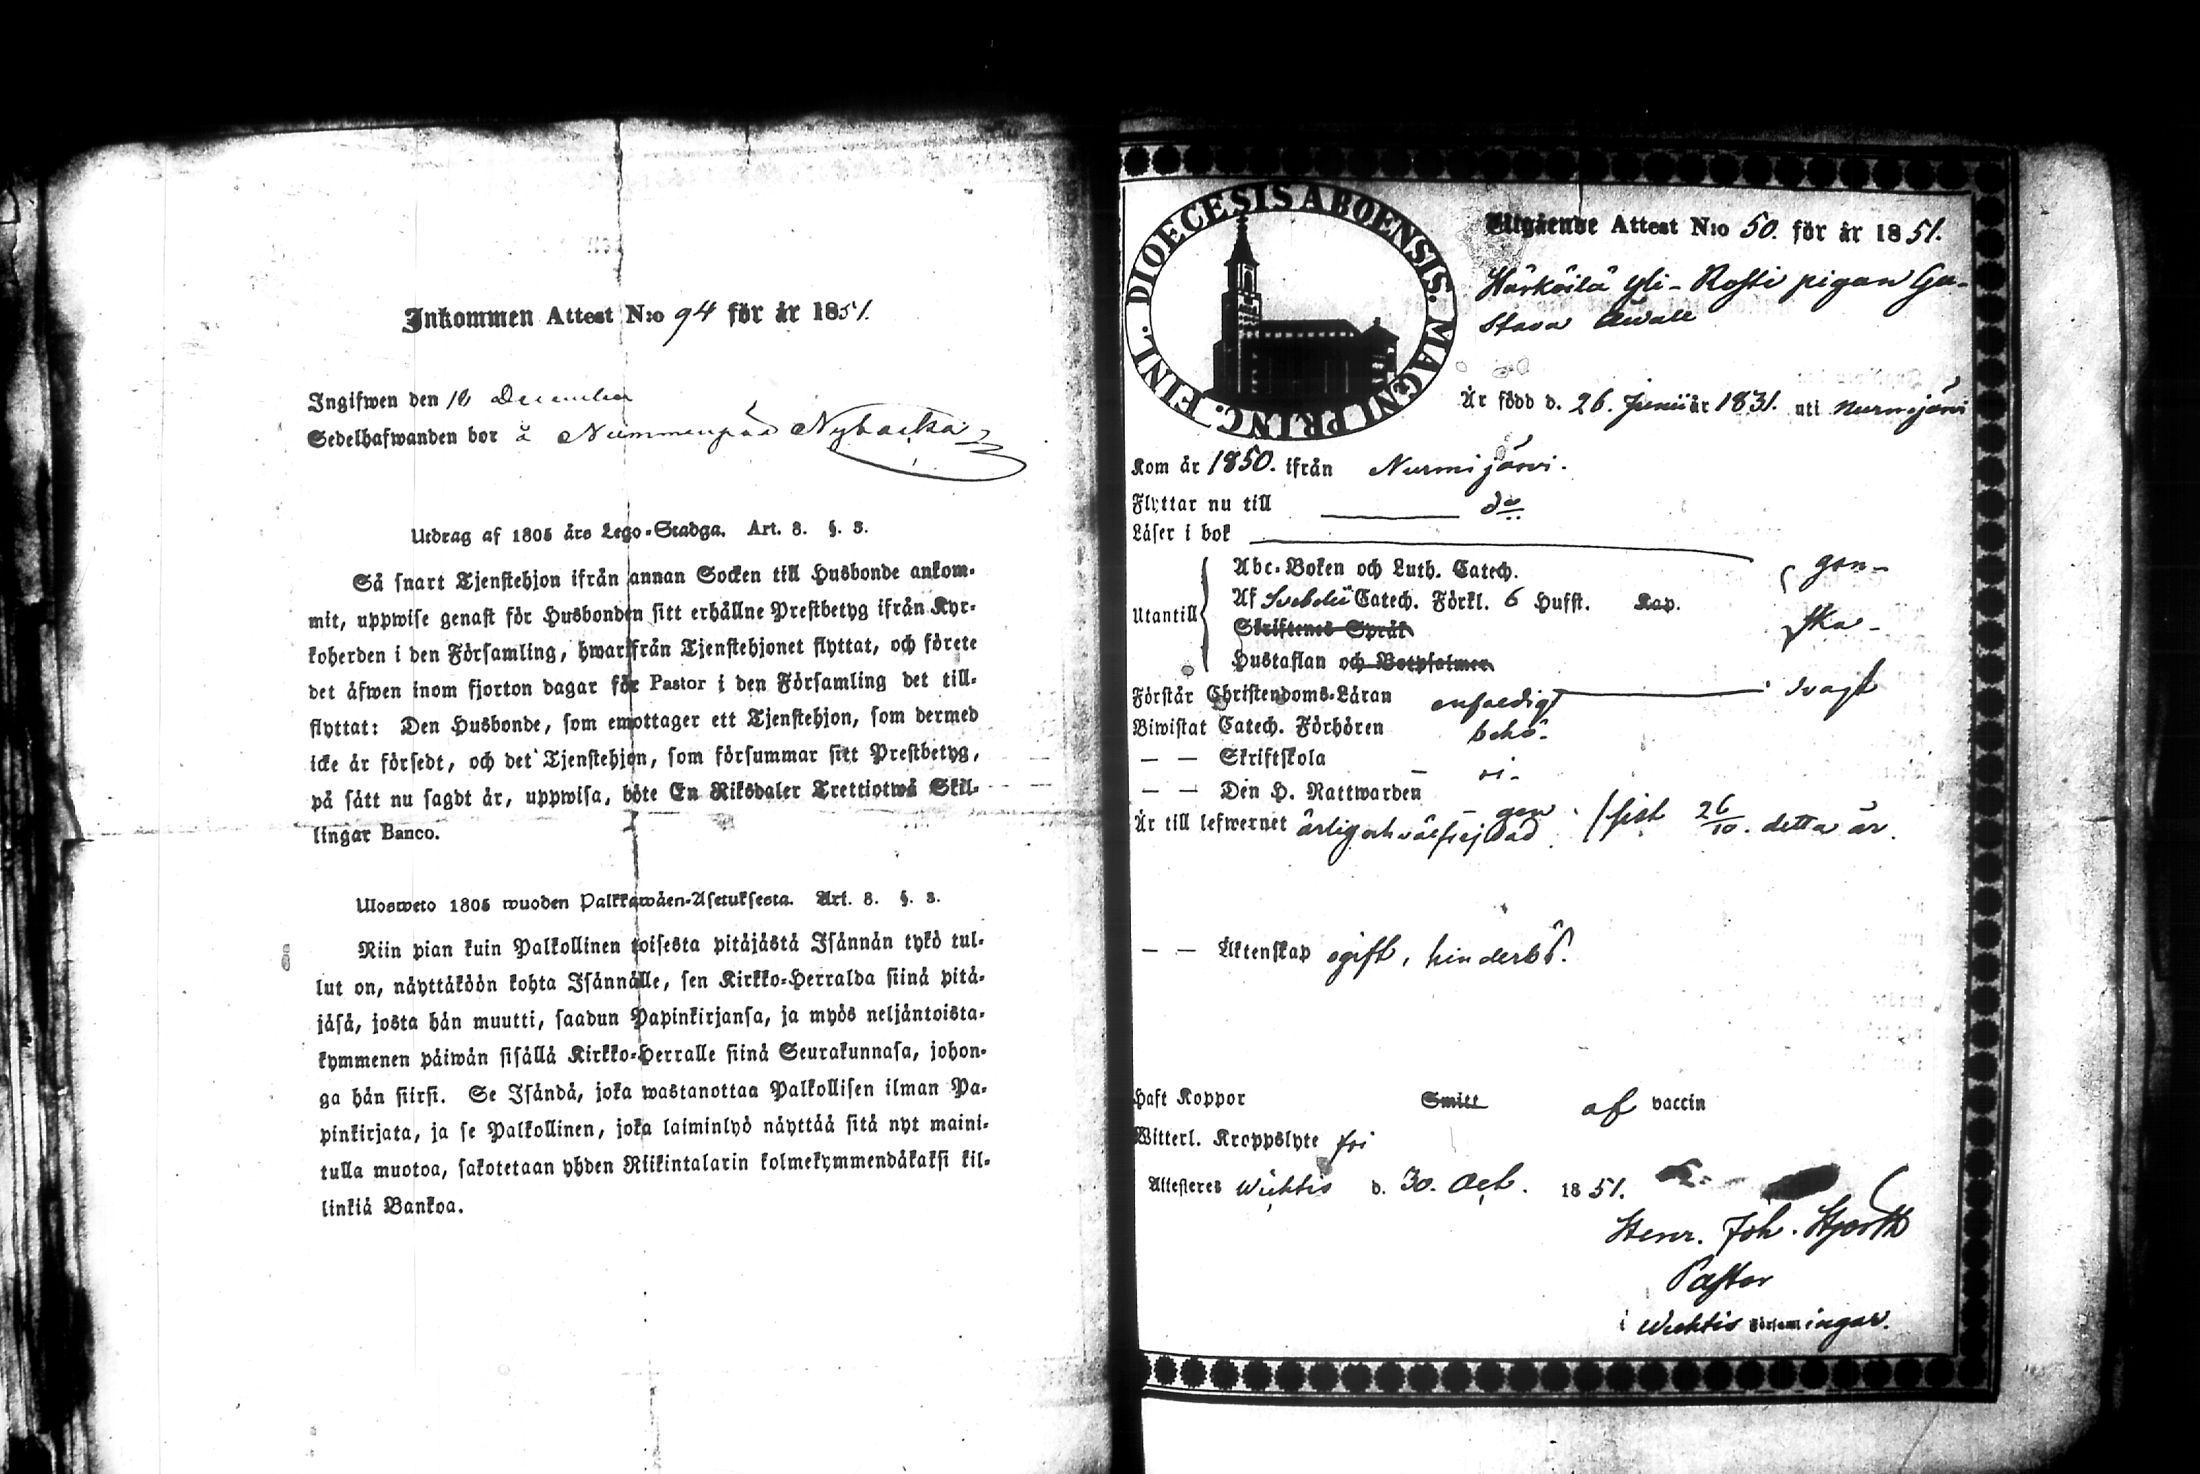 Inkommen Attest N:o 94 för år 1851.
Ingifwen den 10 December
Sedelhafwanden bor å Nummenpää Nybacka
Utdrag af 1805 års Lego-Stadga. Art. 8. §. 3.
Så snart Tjenstehjon ifrån annan Socken till Husbonde ankom-
mit, uppwise genast för Husbonden sitt erhållne Prestbetyg ifrån Kyr-
koherden i den Församling, hwarifrån Tjenstehjonet flyttat, och förete
det äfwen inom fjorton dagar för Pastor i den Församling det till-
flyttat: Den Husbonde, som emottager ett Tjenstehjon, som dermed
icke är försedt, och det Tjenstehjon, som försummar sitt Prestbetyg,
på sätt nu sagdt är, uppwisa, böte En Riksdaler Trettiotwå Skil-
lingar Banco.
Ulosweto 1805 wuoden Palkkawäen-Asetuksesta. Art. 8. §. 3.
Niin pian kuin Palkollinen toisesta pitäjästä Isännän tykö tul-
lut on, näyttäköön kohta Isännälle, sen Kirkko-Herralda siinä pitä-
jäsä, josta hän muutti, saadun Papinkirjansa, ja myös neljäntoista-
kymmenen päiwän sisällä Kirkko-Herralle siinä Seurakunnasa, johon-
ga hän siirsi. Se Isändä, joka wastanottaa Palkollisen ilman Pa-
pinkirjata, ja se Palkollinen, joka laiminlyö näyttää sitä nyt maini-
tulla muotoa, sakotetaan yhden Riikintalarin kolmekymmendäkaksi kil-
linkiä Bankoa.
DIOECESIS ABOENSIS. MAGNI PRINC. FINL.
Utgående Attest N:o 50. för år 1851.
Härköilä Yli-Rosti pigan Gu-
stava
Är född d. 26. Junii år 1831. uti Nurmijärvi
Kom år 1850. ifrån Nurmijärvi.
Flyttar nu till do
Läser i bok
Abc-Boken och Luth. Catech. gan-
Utantill Af Svebelii Catech. Förkl. 6 Hufst. Kap.
Skriftenes Språk ska-
Hustaflan och Botpsalmer
Förstår Christendoms-Läran enfaldigt svagt
Biwistat Catech. Förhören behö-
— — Skriftskola ri-
— — Den H. Nattwarden - gen /sist 26/10. detta år.
Är till lefwernet ärlig och välfrejdad
— — Äktenskap ogift, hinderlös.
Haft Koppor Smitt af vaccin
Witterl. Kroppslyte fri
Attesteres Wichtis d. 30. Oct. 1851.
Henr. Joh. Hjorth
Pastor
i Wichtis Församlingar.